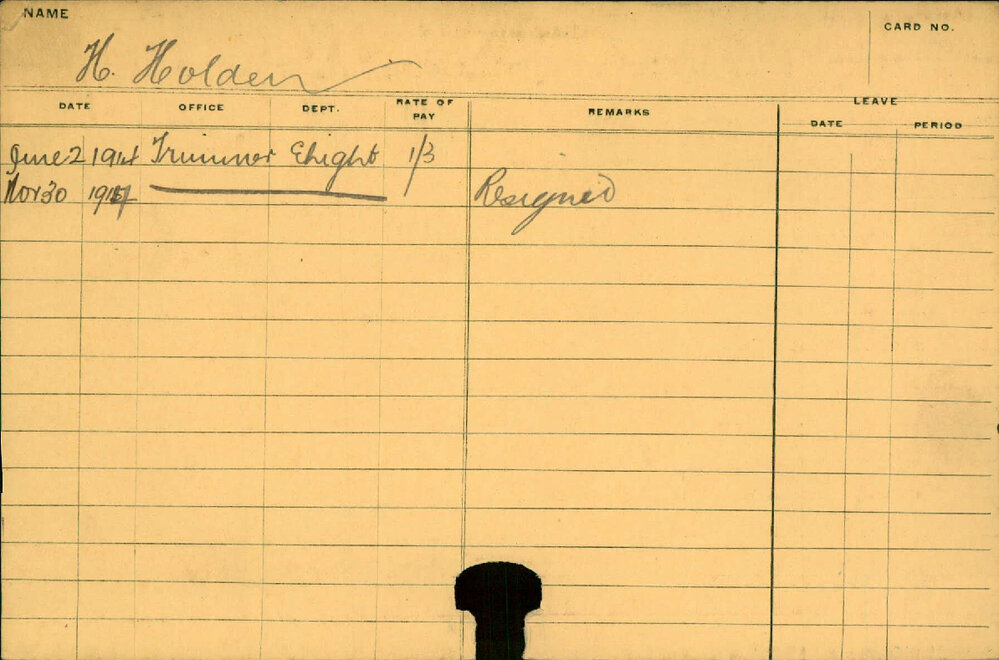 NAME
CARD NO.
H. Holden
DATE OFFICE DEPT. RATE OF PAY REMARKS LEAVE
DATE PERIOD
June 2 1914 Trimmer Elight 1/3
Nov 30 1917 Resigned